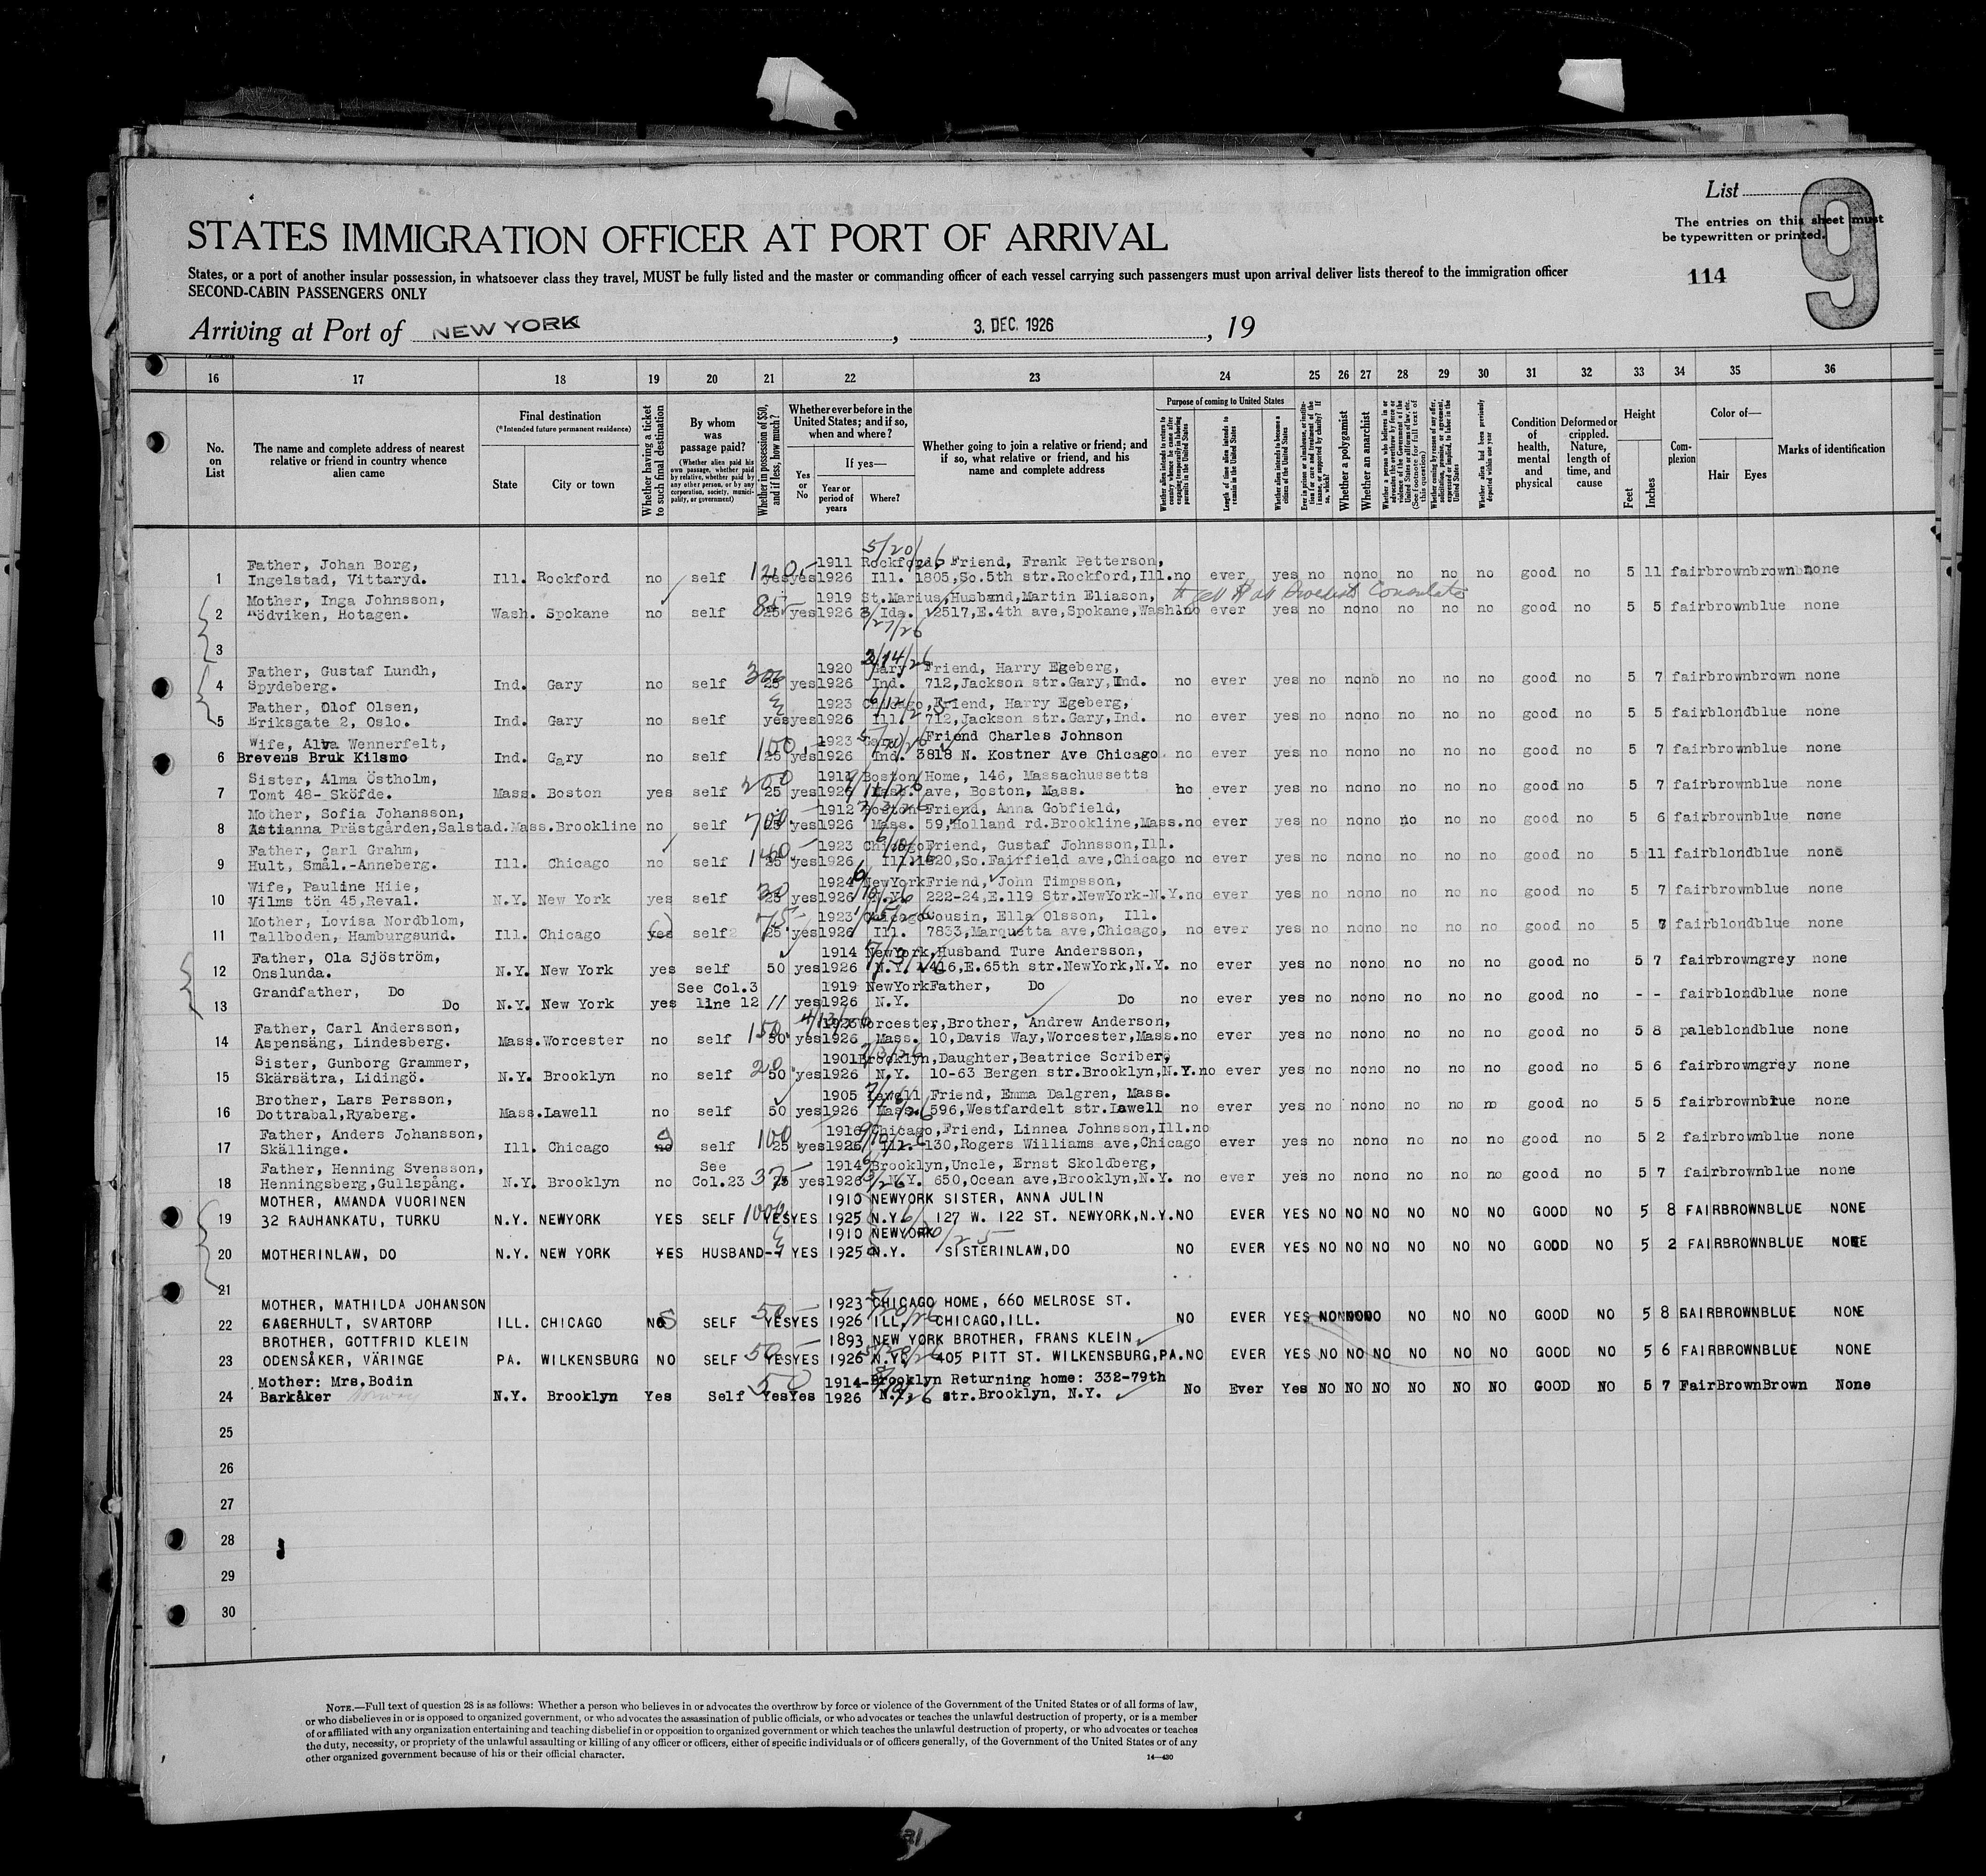 List
9
The entries on this sheet must
be typewritten or printed.
114
STATES IMMIGRATION OFFICER AT PORT OF ARRIVAL
States, or a port of another insular possession, in whatsoever class they travel, MUST be fully listed and the master or commanding officer of each vessel carrying such passengers must upon arrival deliver lists thereof to the immigration officer
SECOND-CABIN PASSENGERS ONLY
Arriving at Port of NEW YORK, 3. DEC. 1926, 19
16 17 18 19 20 21 22 23 24 25 26 27 28 29 30 31 32 33 34 35 36
No. on List
The name and complete address of nearest relative or friend in country whence alien came
Final destination
(*Intended future permanent residence)
State
City or town
Whether having a ticket to such final destination
By whom was passage paid?
(Whether alien paid his own passage, whether paid by relative, whether paid by any other person, or by any corporation, society, municipality, or government)
Whether in possession of $50, and if less, how much?
Whether ever before in the United States; and if so, when and where?
Yes or No
If yes—
Year or period of years
Where?
Whether going to join a relative or friend; and if so, what relative or friend, and his name and complete address
Purpose of coming to United States
Whether alien intends to return to country whence he came after engaging temporarily in laboring pursuits in the United States
Length of time alien intends to remain in the United States
Whether alien intends to become a citizen of the United States
Whether a polygamist
Whether an anarchist
Condition of health, mental and physical
Deformed or crippled. Nature, length of time, and cause
Height
Feet
Inches
Complexion
Color of—
Hair
Eyes
Marks of identification
Father, Johan Borg, 1911 Rockford, Friend, Frank Petterson,
1 Ingelstad, Vittaryd. Ill. Rockford no self yes yes 1926 Ill. 1805,So.5th str.Rockford,Ill. no ever yes no no no no no no good no 5 11 fair brown brown none
Mother, Inga Johnsson, 1919 St.Marius, Husband, Martin Eliason,
2 Rödviken, Hotagen. Wash. Spokane no self 25 yes 1926 Ida. 2517,E.4th ave,Spokane,Wash. no ever yes no no no no no no good no 5 5 fair brown blue none
3
Father, Gustaf Lundh, 1920 Gary Friend, Harry Egeberg,
4 Spydeberg. Ind. Gary no self 25 yes 1926 Ind. 712,Jackson str.Gary,Ind. no ever yes no no no no no no good no 5 7 fair brown brown none
Father, Olof Olsen, 1923 Chicago, Friend, Harry Egeberg,
5 Eriksgate 2, Oslo. Ind. Gary no self yes yes 1926 Ill. 712,Jackson str.Gary,Ind. no ever yes no no no no no no good no 5 5 fair blond blue none
Wife, Alva Wennerfelt, 1923 Gary Friend Charles Johnson
6 Brevens Bruk Kilsmo Ind. Gary no self 25 yes 1926 Ind. 3818 N. Kostner Ave Chicago. no ever yes no no no no no no good no 5 7 fair brown blue none
Sister, Alma Östholm, Boston Home, 146, Massachussetts
7 Tomt 48- Sköfde. Mass. Boston yes self 25 yes 1926 Mass. ave, Boston, Mass. no ever yes no no no no no no good no 5 7 fair brown blue none
Mother, Sofia Johansson, 1912 Boston Friend, Anna Gobfield,
8 Astianna Prästgården,Salstad. Mass. Brookline no self 25 yes 1926 Mass. 59,Holland rd.Brookline,Mass. no ever yes no no no no no no good no 5 6 fair brown blue none
Father, Carl Grahm, 1923 Chicago Friend, Gustaf Johnsson,Ill.
9 Hult, Smål.-Anneberg. Ill. Chicago no self 25 yes 1926 Ill. 1620,So.Fairfield ave,Chicago no ever yes no no no no no no good no 5 11 fair blond blue none
Wife, Pauline Hiie, 1924 NewYork Friend, John Timpsson,
10 Vilms tön 45,Reval. N.Y. New York yes self 25 yes 1926 N.Y. 222-24,E.119 Str.NewYork-N.Y. no ever yes no no no no no no good no 5 7 fair brown blue none
Mother, Lovisa Nordblom, 1923 Chicago Cousin, Ella Olsson, Ill.
11 Tallboden, Hamburgsund. Ill. Chicago yes self 25 yes 1926 Ill. 7833,Marquetta ave,Chicago, no ever yes no no no no no no good no 5 fair blond blue none
Father, Ola Sjöström, 1914 NewYork, Husband Ture Andersson,
12 Onslunda. N.Y. New York yes self 50 yes 1926 N.Y. 416,E.65th str.NewYork,N.Y. no ever yes no no no no no no good no 5 7 fair brown grey none
Grandfather, Do See Col.3 1919 NewYork Father, Do
13 Do N.Y. New York yes line 12 // yes 1926 N.Y. Do no ever yes no no no no no no good no - - fair blond blue none
Father, Carl Andersson, Worcester, Brother, Andrew Anderson,
14 Aspensäng, Lindesberg. Mass. Worcester no self 150 50 yes 1926 Mass. 10,Davis Way,Worcester,Mass. no ever yes no no no no no no good no 5 8 pale blond blue none
Sister, Gunborg Grammer, 1901 Brooklyn, Daughter, Beatrice Scriber,
15 Skärsätra, Lidingö. N.Y. Brooklyn no self 20 50 yes 1926 N.Y. 10-63 Bergen str.Brooklyn,N.Y. no ever yes no no no no no no good no 5 6 fair brown grey none
Brother, Lars Persson, 1905 Lawell Friend, Emma Dalgren, Mass.
16 Dottrabal,Ryaberg. Mass. Lawell no self 50 yes 1926 Mass. 596,Westfardelt str.Lawell no ever yes no no no no no no good no 5 5 fair brown blue none
Father, Anders Johansson, 1916 Chicago, Friend, Linnea Johnsson,Ill. no
17 Skällinge. Ill. Chicago no self 100 25 yes 1926 Ill. 130,Rogers Williams ave,Chicago ever yes no no no no no no good no 5 2 fair brown blue none
Father, Henning Svensson, See 1914 Brooklyn, Uncle, Ernst Skoldberg,
18 Henningsberg,Gullspång. N.Y. Brooklyn no Col.23 25 yes 1926 N.Y. 650,Ocean ave,Brooklyn,N.Y. no ever yes no no no no no no good no 5 7 fair brown blue none
MOTHER, AMANDA VUORINEN 1910 NEWYORK SISTER, ANNA JULIN
19 32 RAUHANKATU, TURKU N.Y. NEWYORK YES SELF 1000 YES YES 1925 N.Y. 127 W. 122 ST. NEWYORK,N.Y. NO EVER YES NO NO NO NO NO NO GOOD NO 5 8 FAIR BROWN BLUE NONE
1910 NEWYORK
20 MOTHERINLAW, DO N.Y. NEW YORK YES HUSBAND-- YES 1925 N.Y. SISTERINLAW,DO NO EVER YES NO NO NO NO NO NO GOOD NO 5 2 FAIR BROWN BLUE NONE
21
MOTHER, MATHILDA JOHANSON 1923 CHICAGO HOME, 660 MELROSE ST.
22 GAGERHULT, SVARTORP ILL. CHICAGO NO SELF 50 YES YES 1926 ILL. CHICAGO,ILL. NO EVER YES NO NO NO NO NO NO GOOD NO 5 8 FAIR BROWN BLUE NONE
BROTHER, GOTTFRID KLEIN 1893 NEW YORK BROTHER, FRANS KLEIN
23 ODENSÅKER, VÄRINGE PA. WILKENSBURG NO SELF 50 YES YES 1926 N.Y. 405 PITT ST. WILKENSBURG,PA. NO EVER YES NO NO NO NO NO NO GOOD NO 5 6 FAIR BROWN BLUE NONE
Mother: Mrs.Bodin 1914- Brooklyn Returning home: 332-79th
24 Barkåker Norway N.Y. Brooklyn Yes Self 50 Yes Yes 1926 N.Y. str.Brooklyn, N.Y. No Ever Yes NO NO NO NO NO NO GOOD NO 5 7 Fair Brown Brown None
25
26
27
28
29
30
NOTE.—Full text of question 28 is as follows: Whether a person who believes in or advocates the overthrow by force or violence of the Government of the United States or of all forms of law,
or who disbelieves in or is opposed to organized government, or who advocates the assassination of public officials, or who advocates or teaches the unlawful destruction of property, or is a member
of or affiliated with any organization entertaining and teaching disbelief in or opposition to organized government or which teaches the unlawful destruction of property, or who advocates or teaches
the duty, necessity, or propriety of the unlawful assaulting or killing of any officer or officers, either of specific individuals or of officers generally, of the Government of the United States or of any
other organized government because of his or their official character.
14—430
91